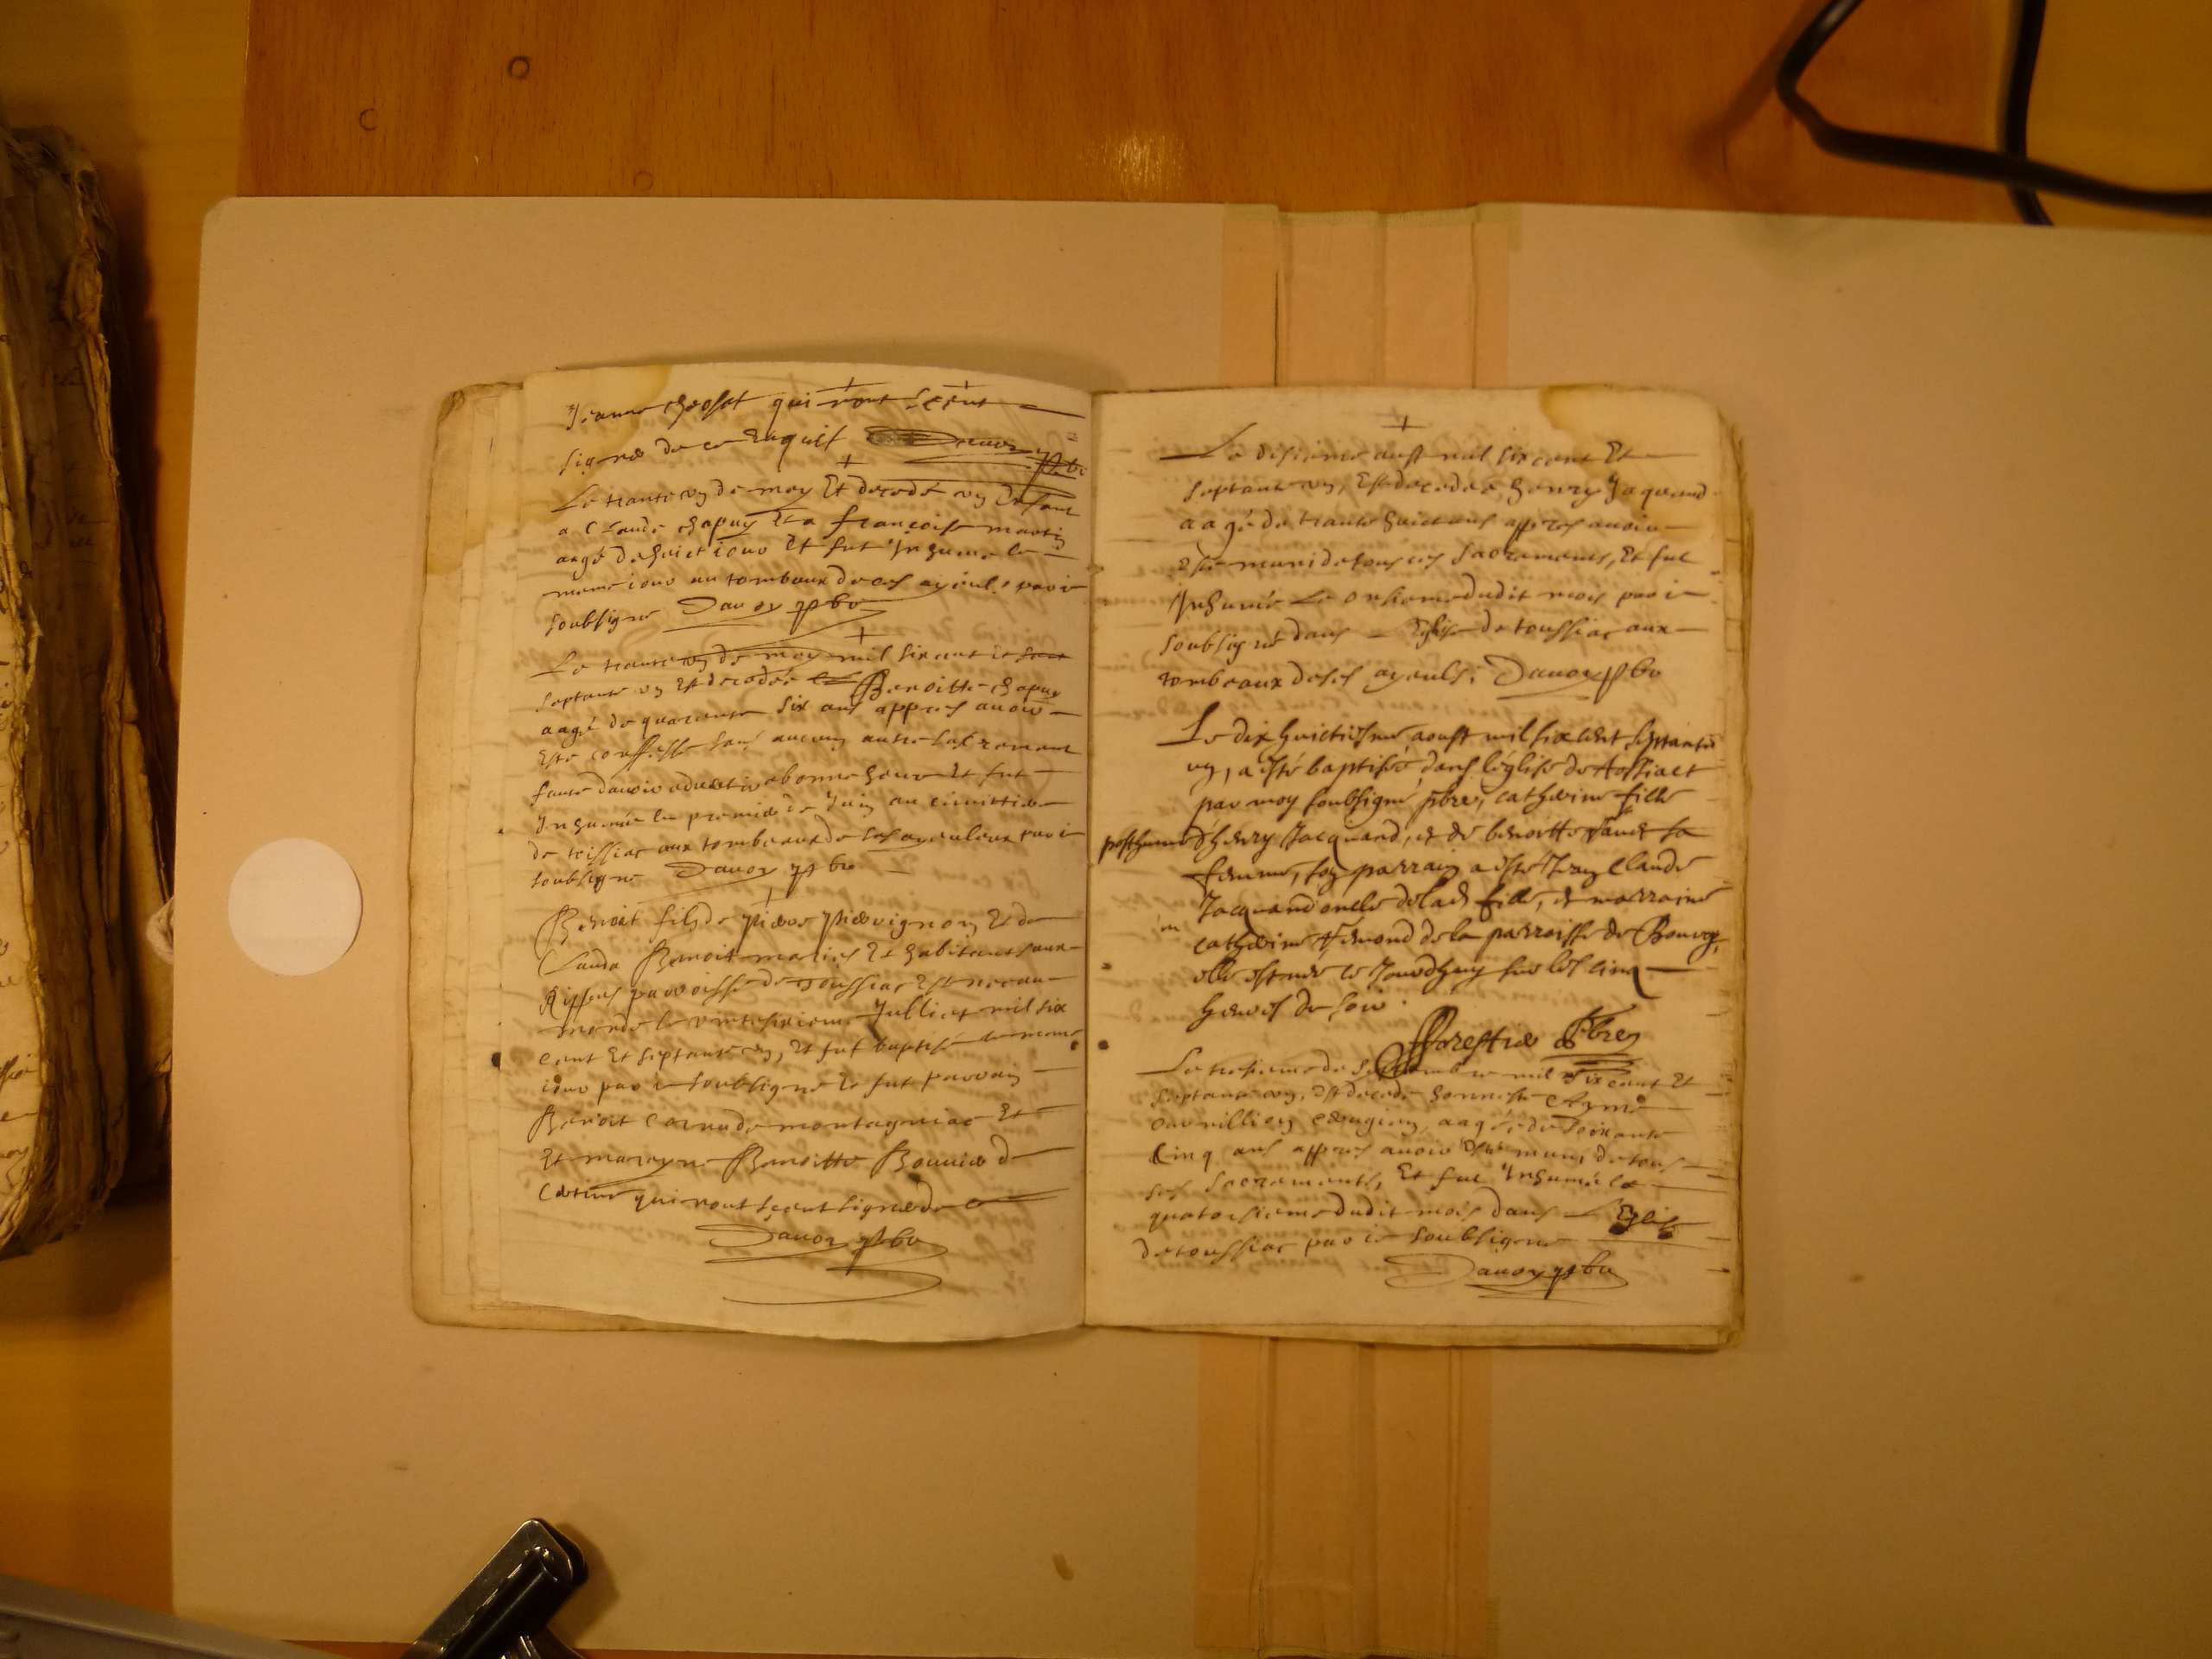 Jeanne chossat qui nont sceut
signé de ce Enquis Dauoy pbr
Le trante vn de may Et decedé vn Enfant
a Claude chapuy Et a francoise martin
aagé de huict iour Et fut Inhumé le
mesme iour au tombeaux de ces ayeuls par ie
soubsigné Dauoy pbr
Le trante vn de may mil six cent Et
septante vn Est decedée Benoitte chapuy
aagé de quarante six ans appres auoir
Esté confessé sans aucung autre sacrement
faute dauoir aduerti a bonne heure Et fut
Inhumée le premier de Juin au cimittiere
de toissiac aux tombeaux de ses ayeuleux par ie
soubsigné Dauoy pbr
Benoit fils de pierre pieuignon Et de
Clauda Benoit mariés Et habitant aux
Rippes parroisse de toussiac Est né au
monde le vint sixieme Julliet mil six
cent Et septante vn, Et fut baptisé le mesme
iour par ie soubsigné Et fut parrain
Benoit Cornu de montagniac Et
Et mareyne Benoitte Bouuier de
Certine qui nont sceut signer de ce
Dauoy pbr
Le disieme aust mil six cent Et
septante vn, Est decedée henry Jaquand
aagé de trante huict ans appres auoir
Esté muni de tous ces sacrements, Et fut
Inhumé Le onsieme dudit mois par ie
soubsigné dans Eglise de toussiac aux
tombeaux de ses ayeuls; Dauoy pbr
Le dix huictiesme aoust mil six cent septante
vn, a esté baptisée dans léglise de tossiact
par moy soubsigné pbre, catherine fille
posthume d'henry Jacquand, et de benoitte sa
femme, son parrain a esté Jean Claude
Jacquand oncle de lad fille, et marraine
catherine de la parroisse de Bourg,
elle est née ce Jourdhuy sur les cinq
heures de soir.
fforestier Pbre
Le tresieme de septembre mil six cent Et
septante vn, Est decedé honneste Esyme
chirugien, aagé de soixante
Cinq ans appres auoir Esté muni de tous
ses sacraments, Et fut Inhumé le
quatorsieme dudit mois dans L'Eglise
de toussiac par ie soubsigné
Dauoy pbr